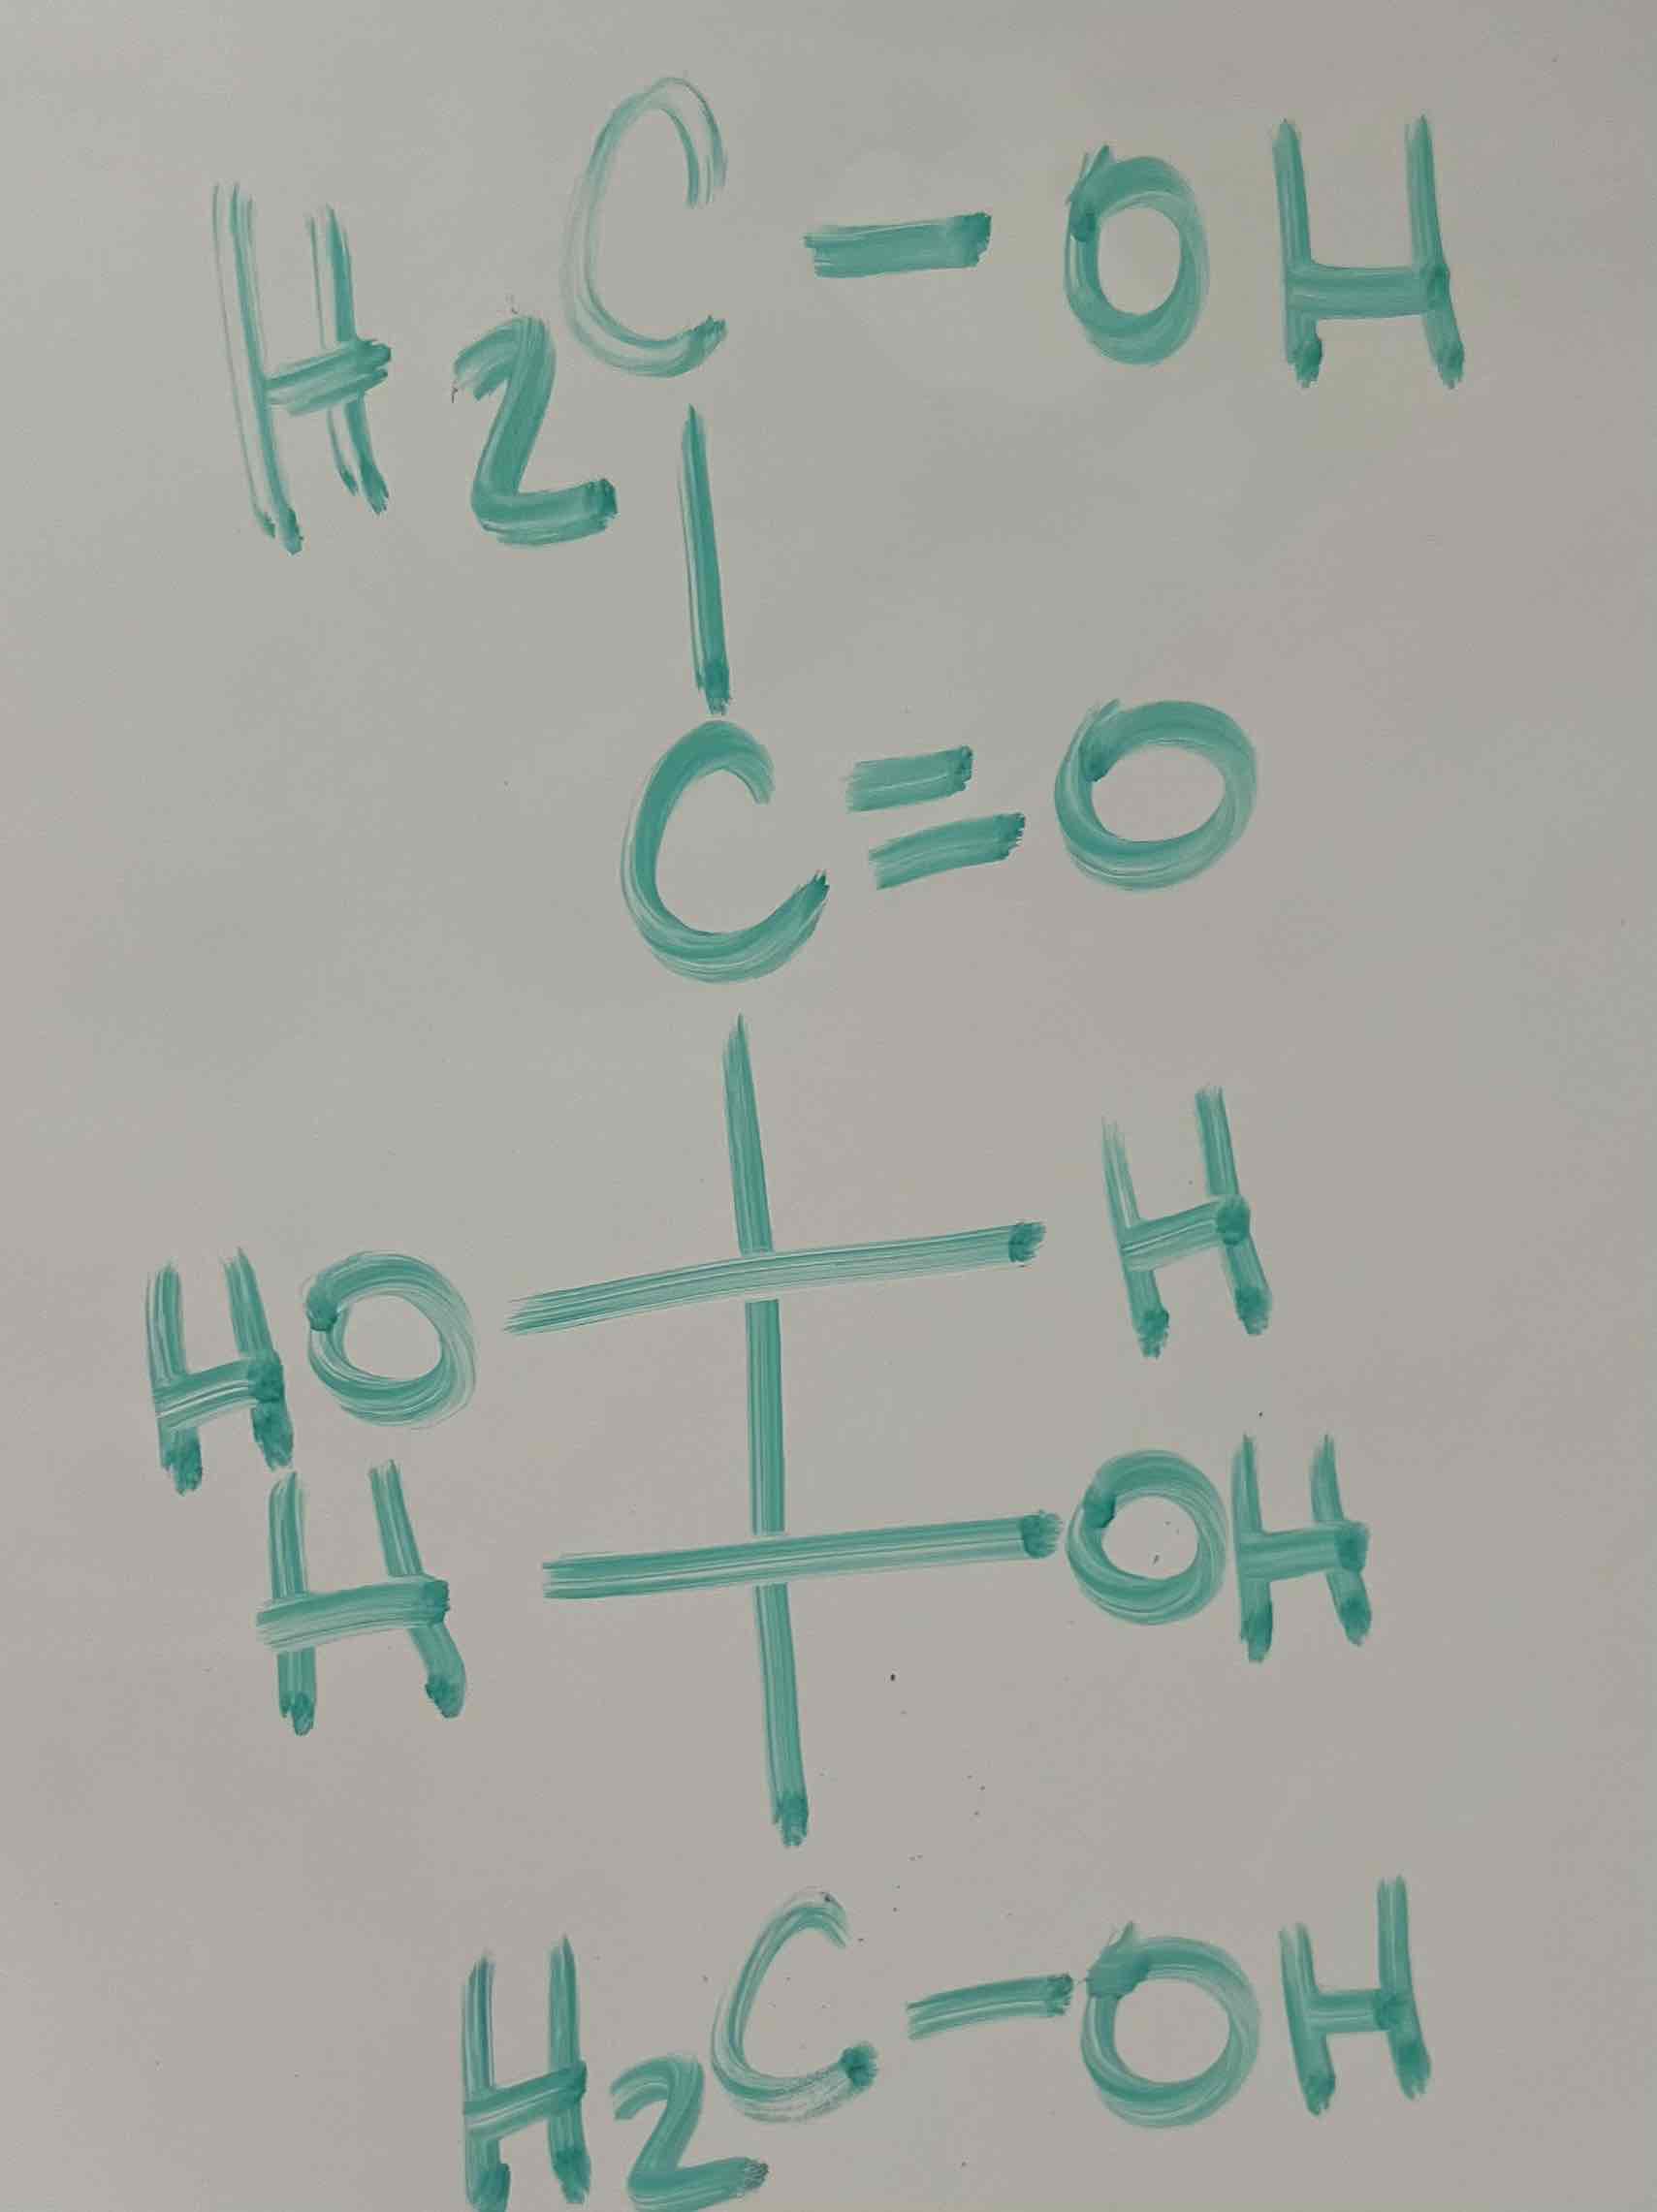 H2C-OH
C=O
HO H
H OH
H2C-OH